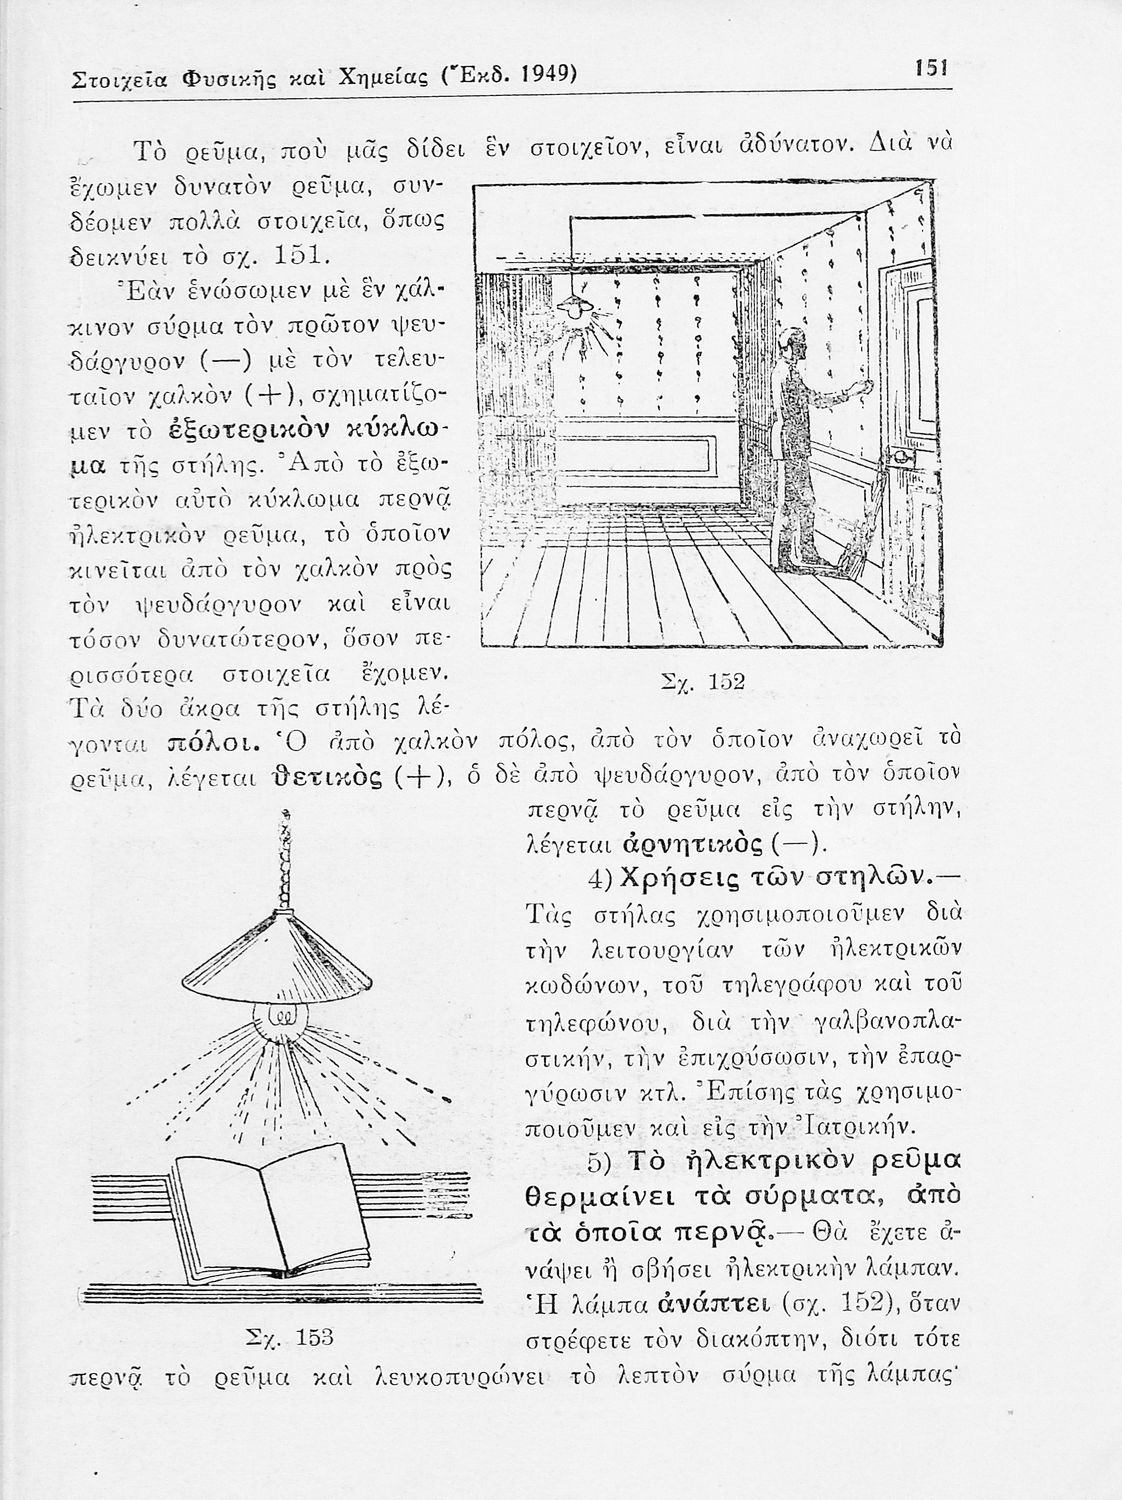 Στοιχεῖα Φυσικῆς καὶ Χημείας (Ἔκδ. 1949)
151
Τὸ ρεῦμα, ποὺ μᾶς δίδει ἓν στοιχεῖον, εἶναι ἀδύνατον. Διὰ νὰ
ἔχωμεν δυνατὸν ρεῦμα, συν-
δέομεν πολλὰ στοιχεῖα, ὅπως
δεικνύει τὸ σχ. 151.
Ἐὰν ἑνώσωμεν μὲ ἓν χάλ-
κινον σύρμα τὸν πρῶτον ψευ-
δάργυρον (—) μὲ τὸν τελευ-
ταῖον χαλκὸν (+), σχηματίζο-
μεν τὸ ἐξωτερικὸν κύκλω-
μα τῆς στήλης. Ἀπὸ τὸ ἐξω-
τερικὸν αὐτὸ κύκλωμα περνᾷ
ἠλεκτρικὸν ρεῦμα, τὸ ὁποῖον
κινεῖται ἀπὸ τὸν χαλκὸν πρὸς
τὸν ψευδάργυρον καὶ εἶναι
τόσον δυνατώτερον, ὅσον πε-
ρισσότερα στοιχεῖα ἔχομεν.
Τὰ δύο ἄκρα τῆς στήλης λέ-
γονται πόλοι. Ὁ ἀπὸ χαλκὸν πόλος, ἀπὸ τὸν ὁποῖον ἀναχωρεῖ τὸ
ρεῦμα, λέγεται θετικὸς (+), ὁ δὲ ἀπὸ ψευδάργυρον, ἀπὸ τὸν ὁποῖον
περνᾷ τὸ ρεῦμα εἰς τὴν στήλην,
λέγεται ἀρνητικὸς (—).
4) Χρήσεις τῶν στηλῶν.—
Τὰς στήλας χρησιμοποιοῦμεν διὰ
τὴν λειτουργίαν τῶν ἠλεκτρικῶν
κωδώνων, τοῦ τηλεγράφου καὶ τοῦ
τηλεφώνου, διὰ τὴν γαλβανοπλα-
στικήν, τὴν ἐπιχρύσωσιν, τὴν ἐπαρ-
γύρωσιν κτλ. Ἐπίσης τὰς χρησιμο-
ποιοῦμεν καὶ εἰς τὴν Ἰατρικήν.
5) Τὸ ἠλεκτρικὸν ρεῦμα
θερμαίνει τὰ σύρματα, ἀπὸ
τὰ ὁποῖα περνᾷ.— Θὰ ἔχετε ἀ-
νάψει ἢ σβήσει ἠλεκτρικὴν λάμπαν.
Ἡ λάμπα ἀνάπτει (σχ. 152), ὅταν
στρέφετε τὸν διακόπτην, διότι τότε
περνᾷ τὸ ρεῦμα καὶ λευκοπυρώνει τὸ λεπτὸν σύρμα τῆς λάμπας·
Σχ. 152
Σχ. 153